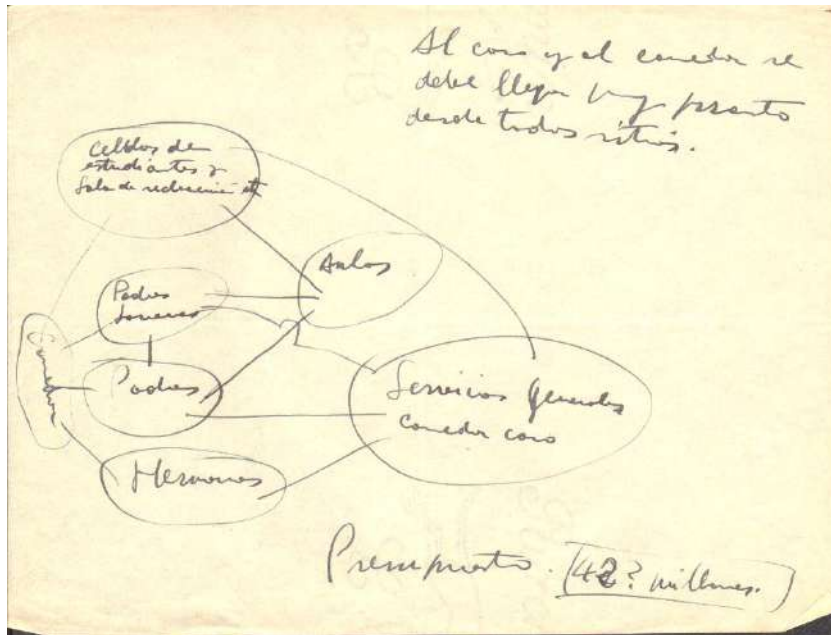 Al coro y al comedor se
debe llegar muy pronto
desde todos sitios.
Celdas de
estudiantes y
Sala de
Aulas
Padres
Jovenes
Comedor
Padres
Servicios Generales
Comedor coro
Hermanos
Presupuesto. 42? millones.